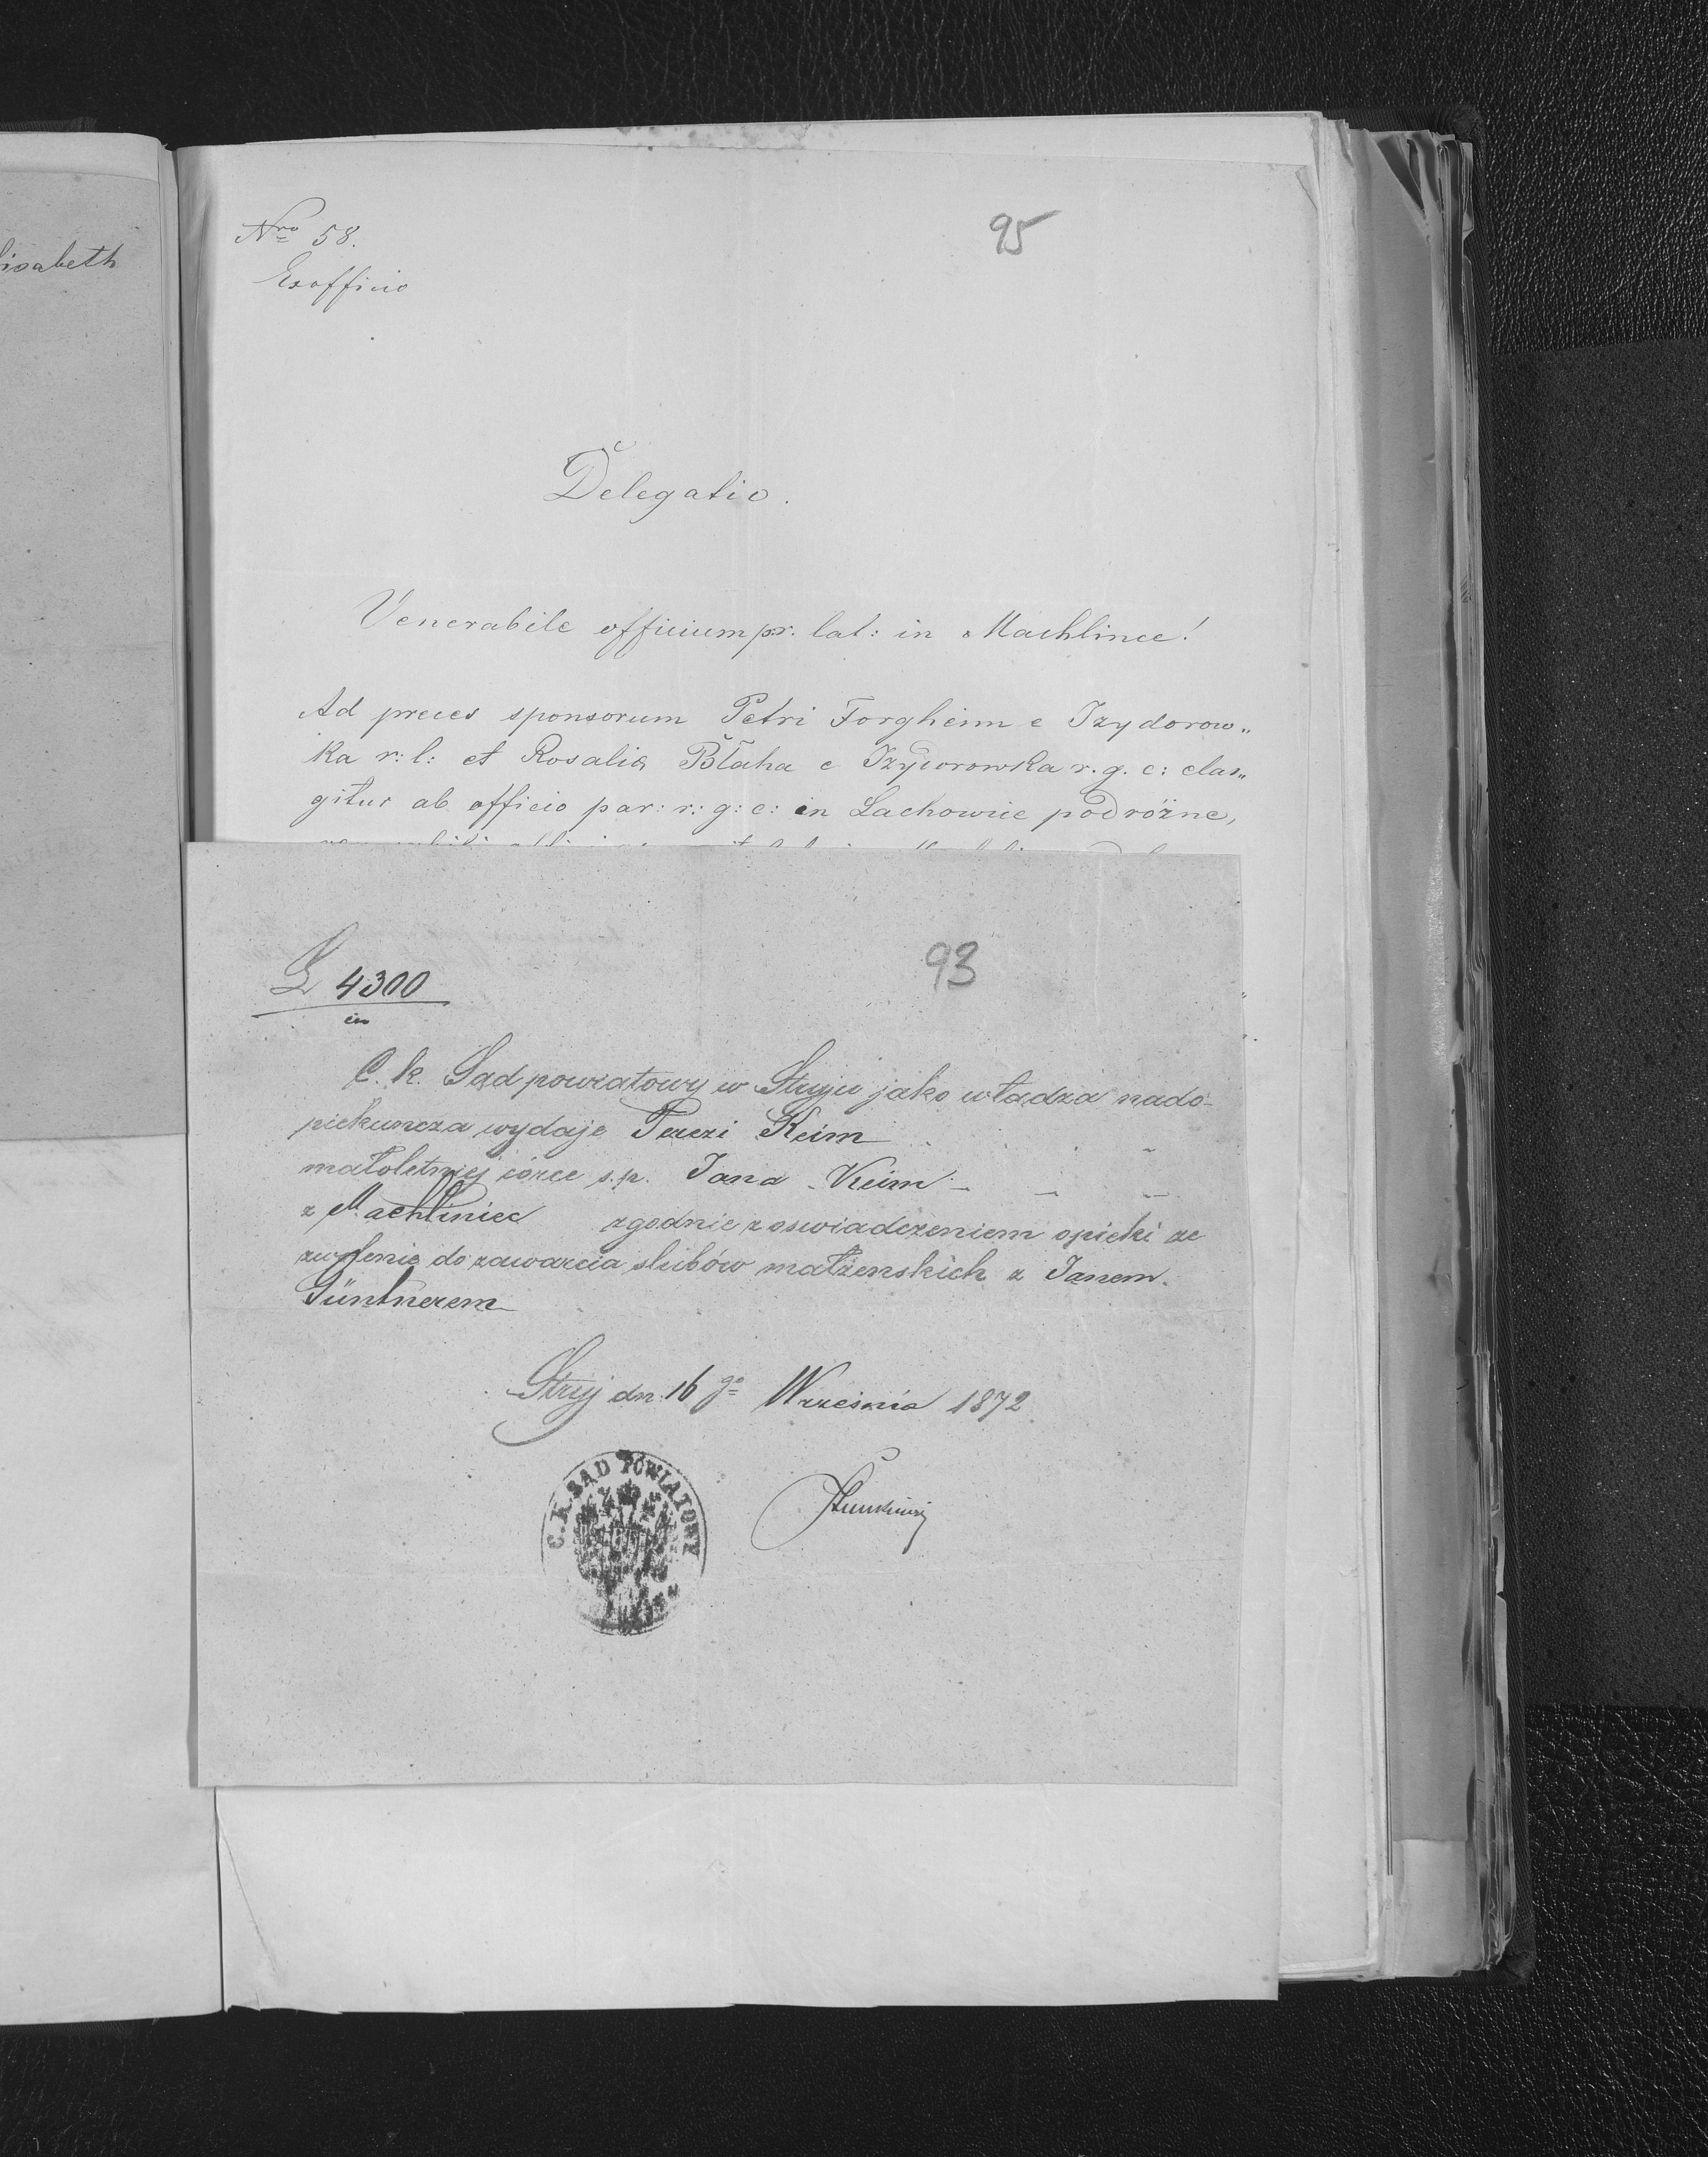 isabeth
Nro 58.
95
Exofficio
Delegatio.
Venerabile officium pr. lat: in Machlince!
Ad preces sponsorum Petri Forgheim e Izydorow„
ka r: l: et Rosalia Błaha e Izydorowka r. g. c: elar„
gitur ab officio par: r: g: c: in Lachowice podróżne,
93
L 4300
C. k. Sąd powiatowy w Stryju jako władza nado-
piekuncza wydaje Terezi Keim
małoletniej córce s. p. Jana Keim
z Machliniec zgodnie z oswiadczeniem opieki ze
zwolenie do zawarcia slubów małżenskich z Janem
Güntnerem
Stryj dn. 16 go Wrzesnia 1872
C. K. SĄD POWIATOWY